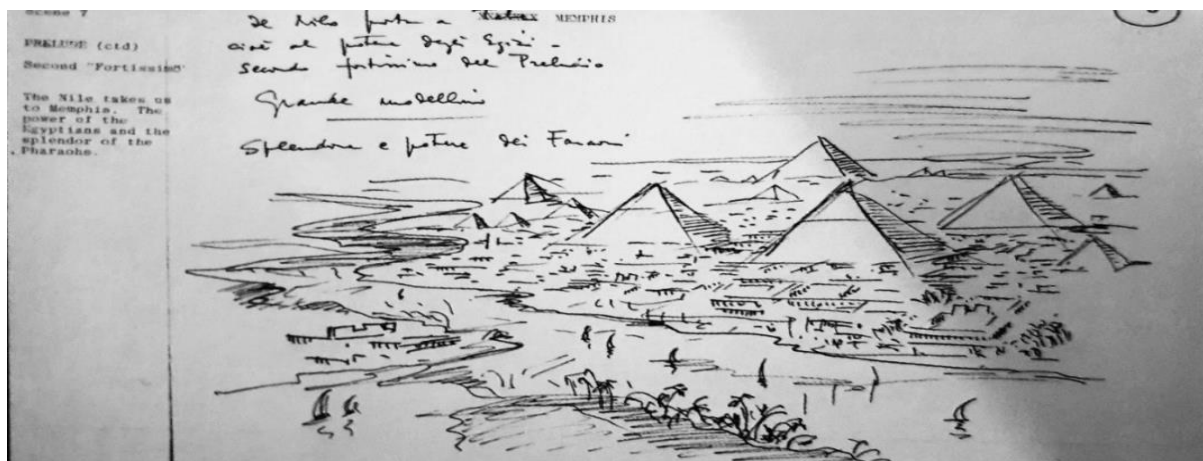 Scene 7
PRELUDE (ctd)
Second "Fortissimo"
The Nile takes us
to Memphis. The
power of the
Egyptians and the
splendor of the
Pharaohs.
MEMPHIS
cioè al potere degli Egizi -
secondo fortissimo del Preludio
Grande modellino
Splendore e potere dei Faraoni